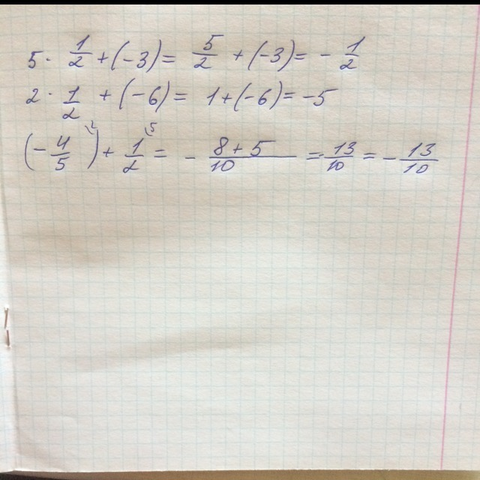 5 · 1/2 + (-3) = 5/2 + (-3) = - 1/2
2 · 1/2 + (-6) = 1 + (-6) = -5
(- 4/5 \2) + 1/2 \5 = - 8 + 5/10 = 13/10 = - 13/10